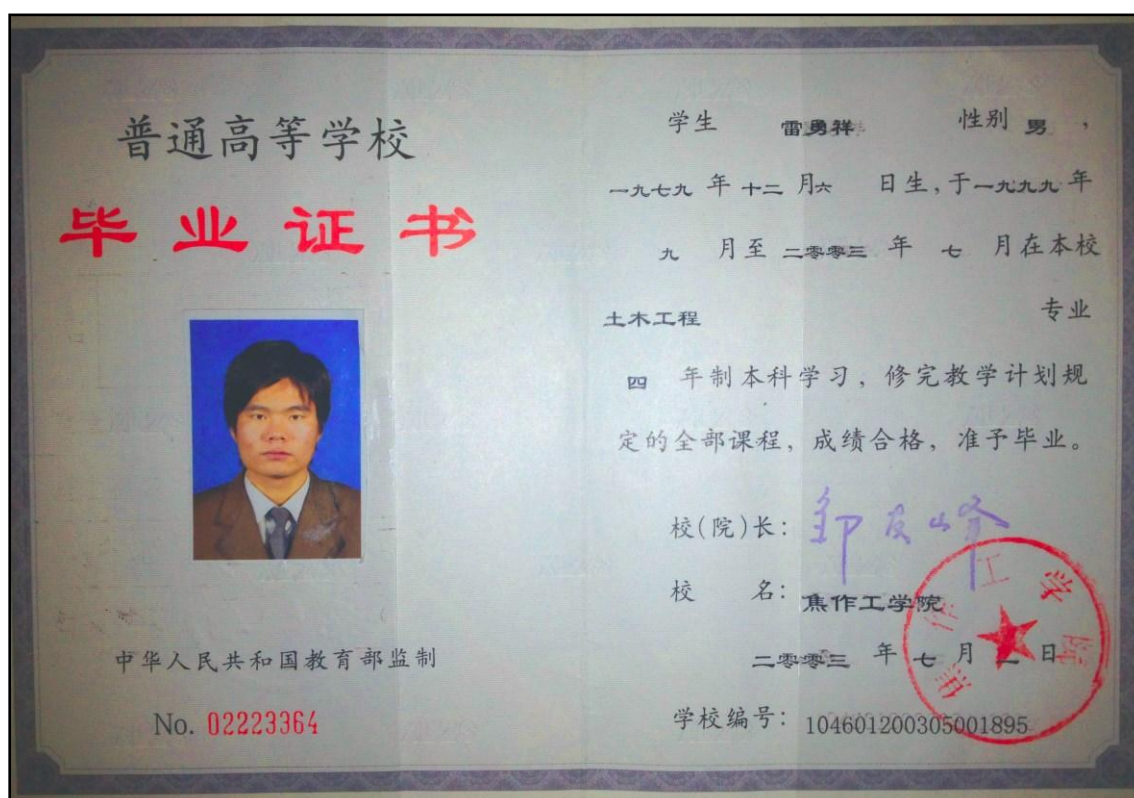 普通高等学校
毕业证书
中华人民共和国教育部监制
No. 02223364
学生 雷勇祥 性别 男,
一九七九 年 十二 月六 日生,于一九九九 年
九 月至 二零零三 年 七 月在本校
土木工程 专业
四 年制本科学习，修完教学计划规
定的全部课程，成绩合格，准予毕业。
校(院)长: 邹友峰
校 名: 焦作工学院
二零零三 年 七 月 日
学校编号: 104601200305001895
焦作工学院